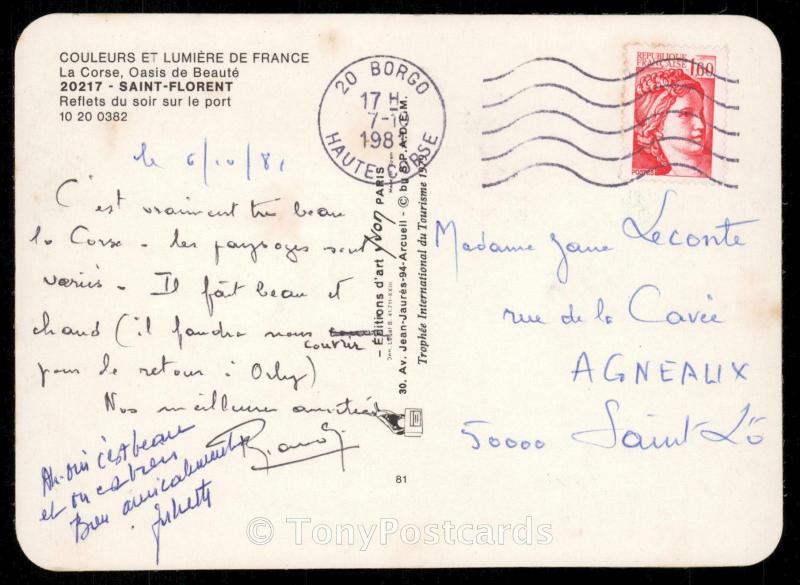 COULEURS ET LUMIÈRE DE FRANCE
La Corse, Oasis de Beauté
20217 - SAINT-FLORENT
Reflets du soir sur le port
10 20 0382
20 BORGO
17 H
7-1
198
HAUTE-CORSE
REPUBLIQUE
FRANÇAISE
1,60
POSTES
le 6/10/81
C'est vraiment très beau
la Corse - les paysages sont
variés - Il fait beau et
chaud (il faudra nous
couvrir
pour le retour à Orly)
Nos meilleures amitiés
Ah oui c'est beau
et on est bien
Bien amicalement
Madame Jane Leconte
rue de la Cavée
AGNEAUX
50000 Saint-Lô
Éditions d'art yvon PARIS
30. Av. Jean-Jaurès-94-Arcueil - © by S.P.A.D.E.M.
Trophée International du Tourisme 1979
81
© TonyPostcards